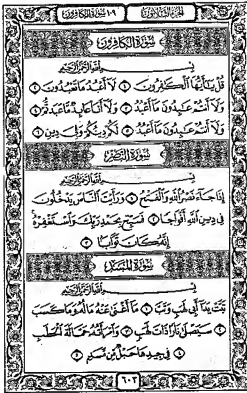 الجزء الثلاثون ١٠٩ سورة الكافرون
سورة الكافرون
بسم الله الرحمن الرحيم
قل يـأيها الكـفرون ١ لا أعبد ما تعبدون ٢
ولا أنتم عـبدون ما أعبد ٣ ولا أنا عابد ما عبدتم ٤
ولا أنتم عـبدون ما أعبد ٥ لكم دينكم ولي دين ٦
سورة النصر
بسم الله الرحمن الرحيم
إذا جاء نصر الله والفتح ١ ورأيت الناس يدخلون
في دين الله أفواجا ٢ فسبح بحمد ربك واستغفره
إنه كان توابا ٣
سورة المسد
بسم الله الرحمن الرحيم
تبت يدا أبي لهب وتب ١ ما أغنى عنه ماله وما كسب
٢ سيصلى نارا ذات لهب ٣ وامرأته حمالة الحطب
٤ في جيدها حبل من مسد ٥
٦٠٣